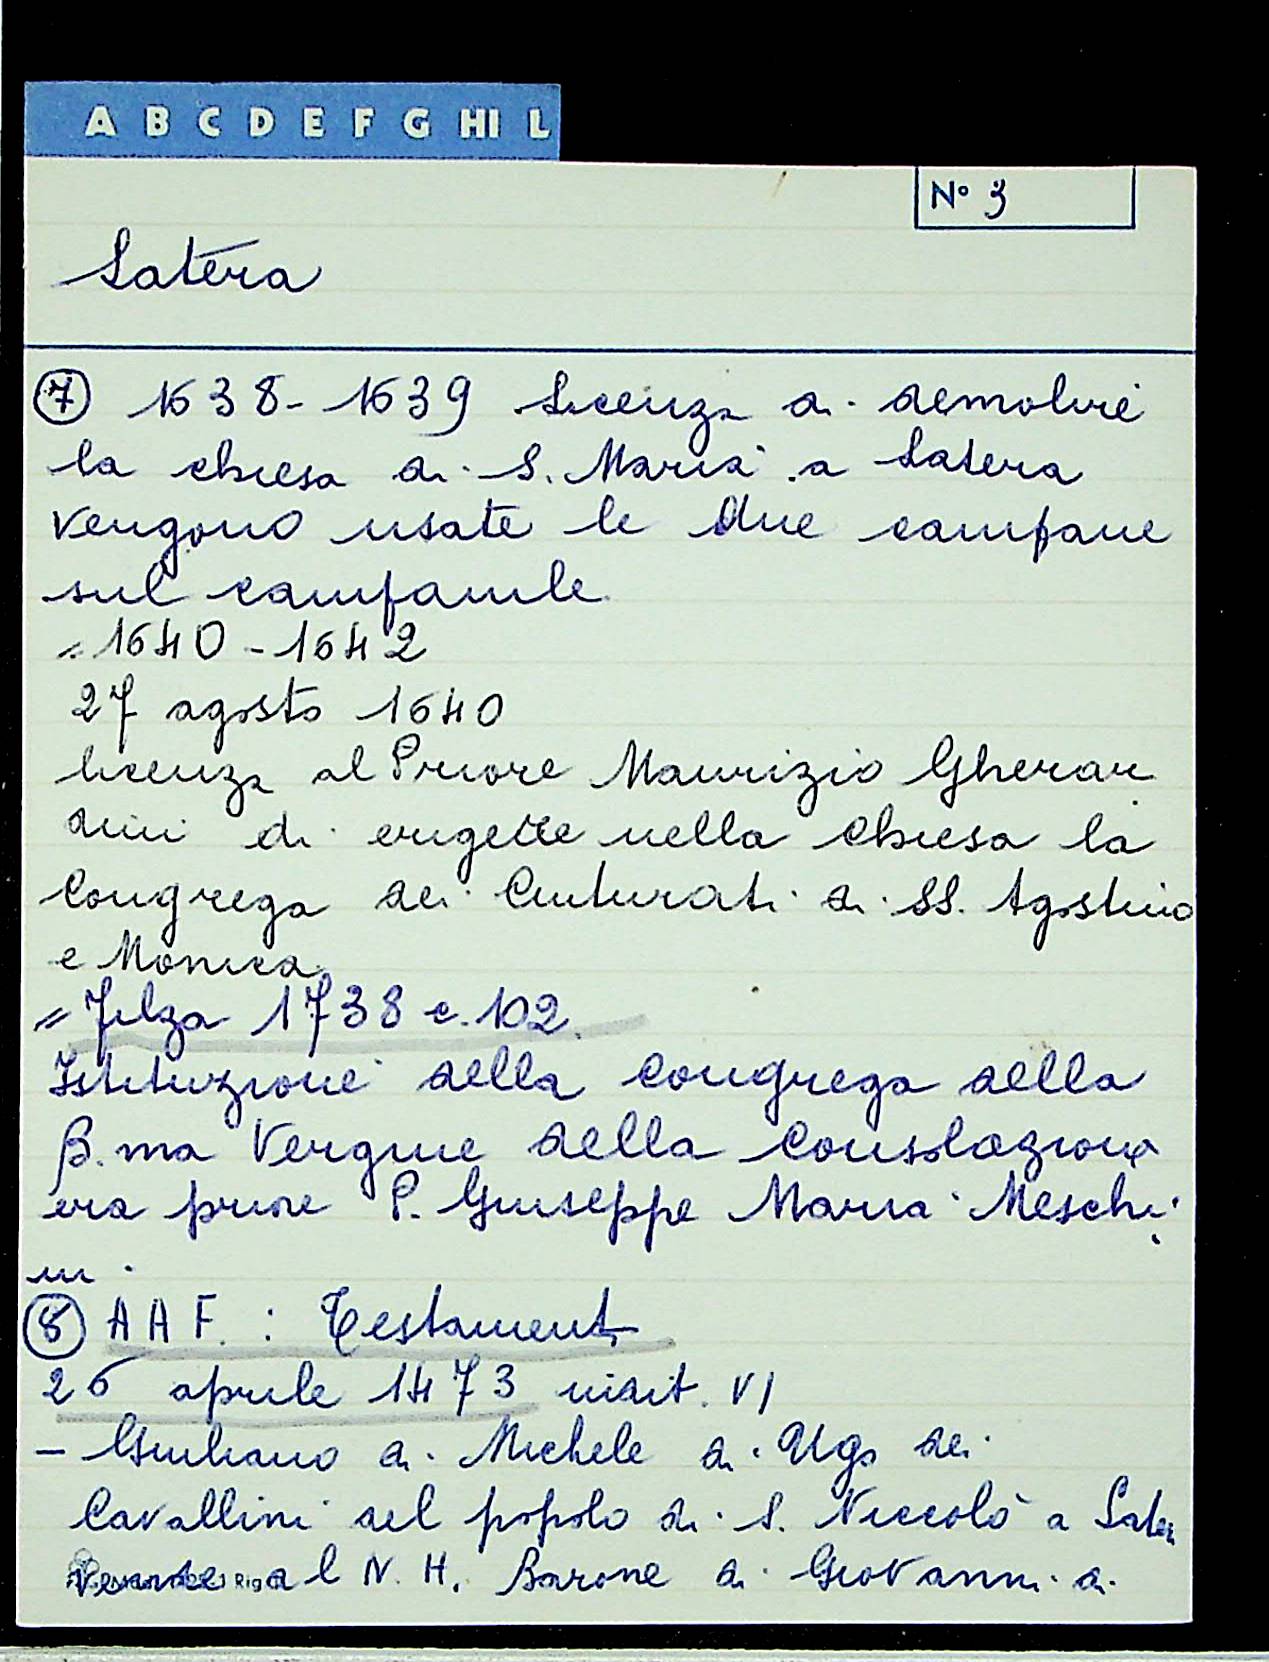 A B C D E F G HI L
N° 3
Latera
7 1638-1639 Licenza di demolire
la chiesa di S. Maria a Latera
vengono usate le due campane
sul campanile
" 1640-1642
27 agosto 1640
licenza al Priore Maurizio Gherar
dini di erigere nella chiesa la
Congrega dei Cinturati di SS. Agostino
e Monica
" Filza 1738 c. 102
Istituzione della congrega della
B.ma Vergine della Consolazione
era priore P. Giuseppe Maria Meschi
ni.
8 A A F. : Testamenti
26 aprile 1473 indit. VI
- Giuliano di Michele di Ugo dei
Cavallini del popolo di S. Niccolò a Latera
vende al N. H. Barone di Giovanni di